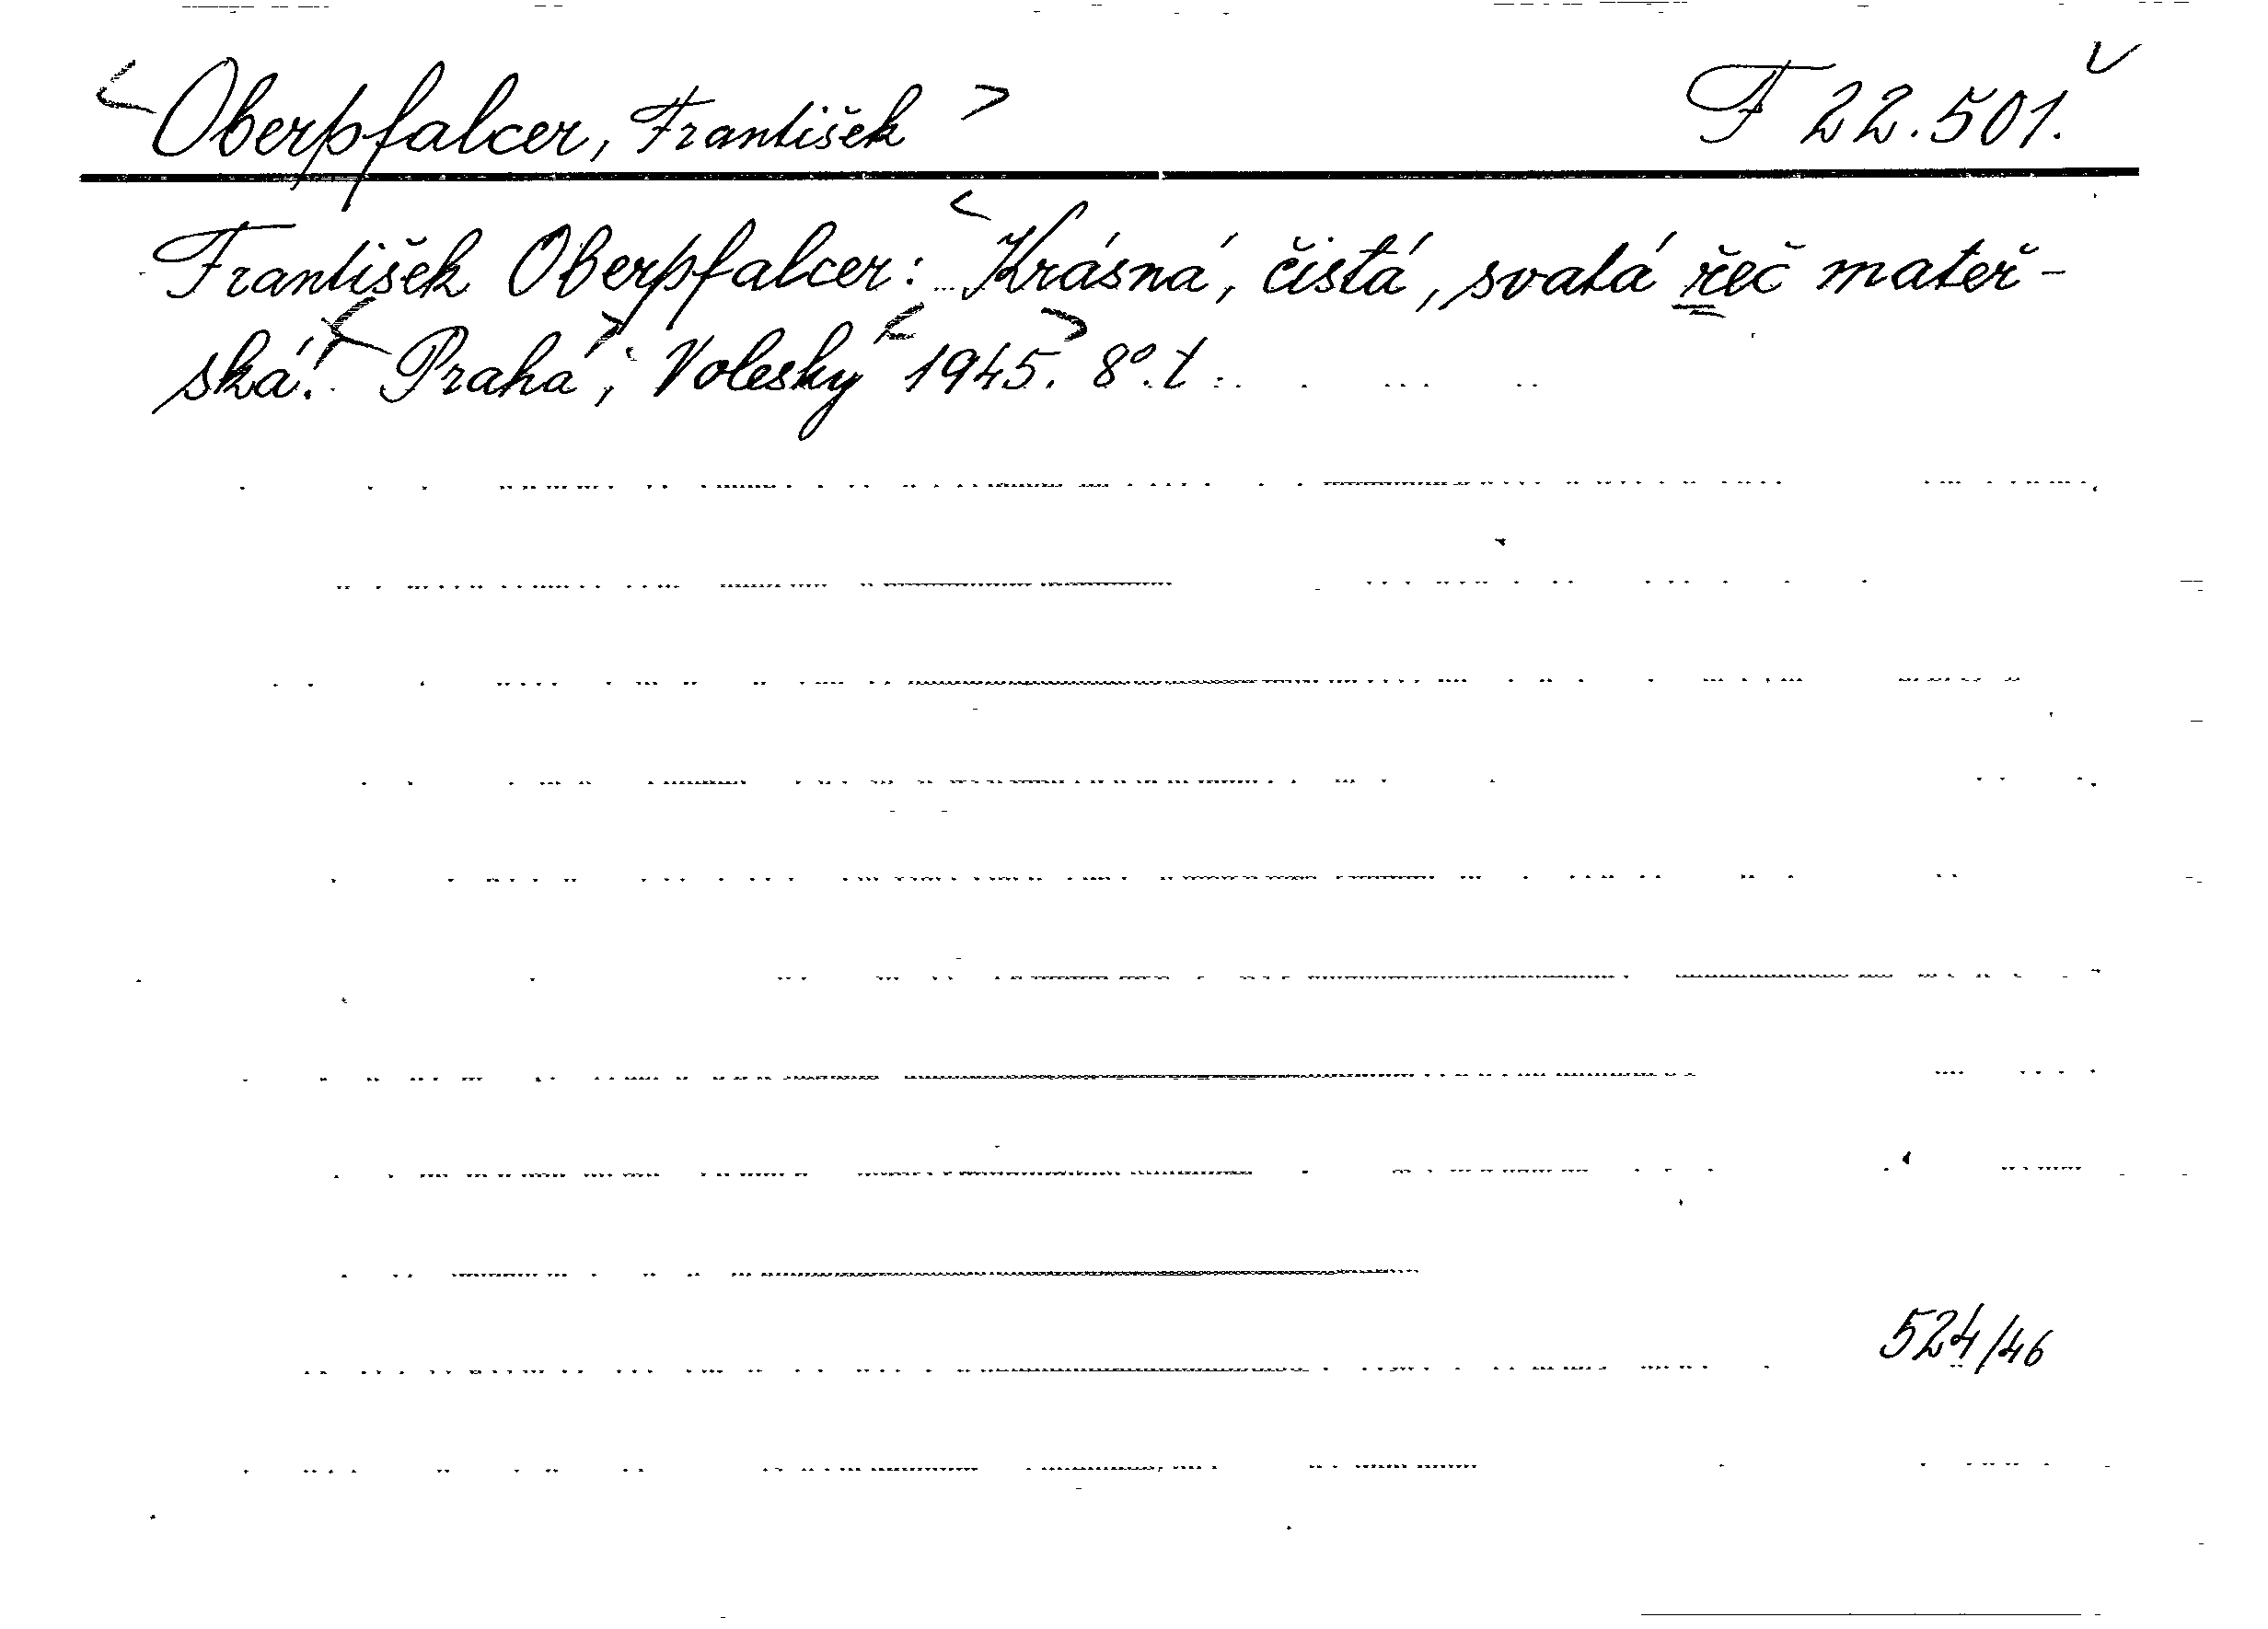 <Oberpfalcer, František> F 22.501.
František Oberpfalcer: <Krásná, čistá, svatá řeč mateř-
ská! <Praha>, Voleský <1945.> 8°. t.
524/46